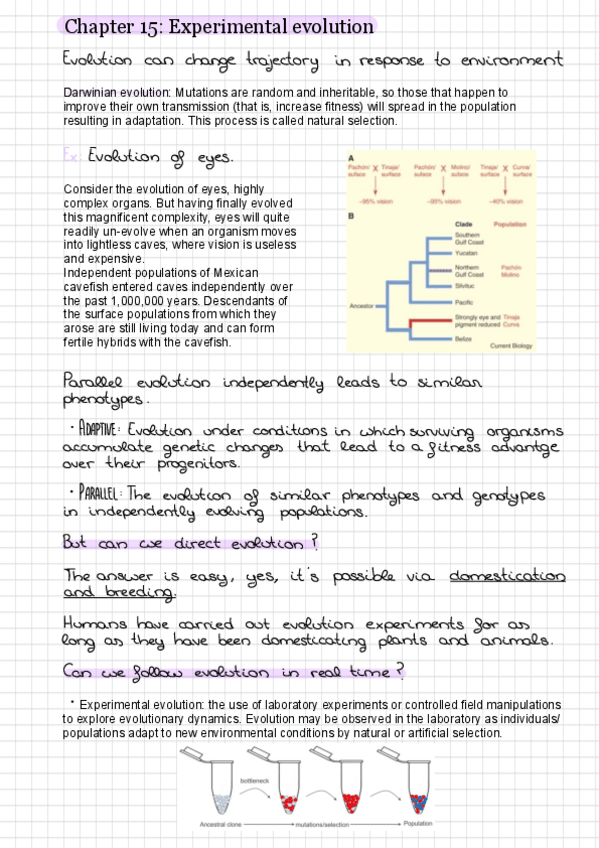 Chapter 15: Experimental evolution
Evolution can change trajectory in response to environment
Darwinian evolution: Mutations are random and inheritable, so those that happen to
improve their own transmission (that is, increase fitness) will spread in the population
resulting in adaptation. This process is called natural selection.
Ex: Evolution of eyes.
Consider the evolution of eyes, highly
complex organs. But having finally evolved
this magnificent complexity, eyes will quite
readily un-evolve when an organism moves
into lightless caves, where vision is useless
and expensive.
Independent populations of Mexican
cavefish entered caves independently over
the past 1,000,000 years. Descendants of
the surface populations from which they
arose are still living today and can form
fertile hybrids with the cavefish.
A
Pachón/ X Tinaja/ Pachón/ X Molino/ Tinaja/ X Curva/
surface surface surface surface surface surface
B
Clade Population
Southern
Gulf Coast
Yucatan
Northern Pachón
Gulf Coast Molino
Slivituc
Ancestor
Pacific
Strongly eye and Tinaja
pigment reduced Curva
Belize
Current Biology
Parallel evolution independently leads to similar
phenotypes.
· ADAPTIVE: Evolution under conditions in which surviving organisms
accumulate genetic changes that lead to a fitness advantge
over their progenitors.
· PARALLEL: The evolution of similar phenotypes and genotypes
in independently evolving populations.
But can we direct evolution?
The answer is easy, yes, it's possible via domestication
and breeding.
Humans have carried out evolution experiments for as
long as they have been domesticating plants and animals.
Can we follow evolution in real time?
· Experimental evolution: the use of laboratory experiments or controlled field manipulations
to explore evolutionary dynamics. Evolution may be observed in the laboratory as individuals/
populations adapt to new environmental conditions by natural or artificial selection.
bottleneck
Ancestral clone mutations/selection Population